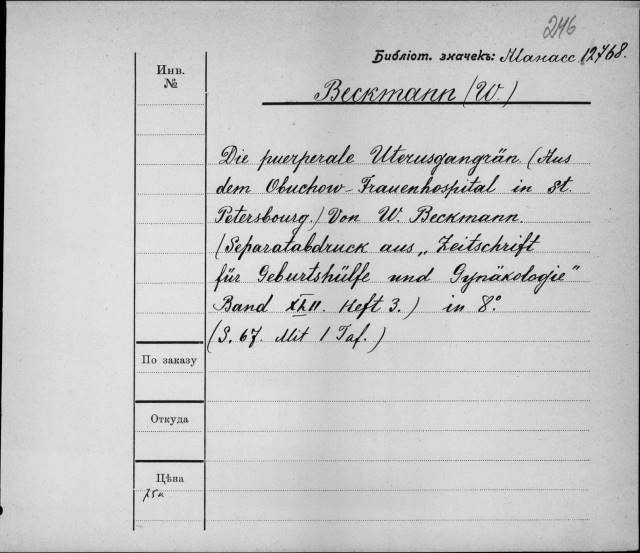 246
Библіот. значекъ: Манасс. 12768.
Инв.
№
Beckmann (W.)
Die puerperale Uterusgangrän. (Aus
dem Obuchow-Frauenhospital in St.
Petersbourg.) Von W. Beckmann.
(Separatabdruck aus „Zeitschrift
für Geburtshülfe und Gynäkologie"
Band XLII. Heft 3.) in 8°.
(S. 67. Mit 1 Taf.)
По заказу
Откуда
Цѣна
75к